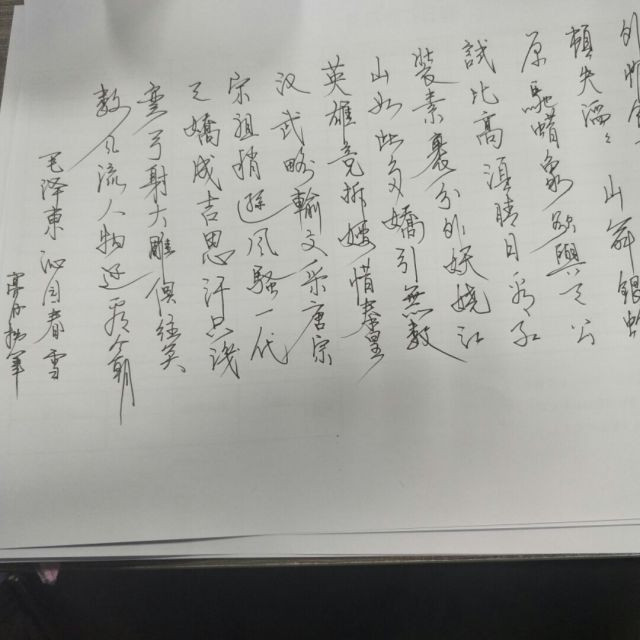 外惟余
頓失滔々山舞銀蛇
原馳蜡象欲與天公
試比高須晴日看红
装素裹分外妖娆江
山如此多嬌引無数
英雄竞折腰惜秦皇
汉武略輸文采唐宗
宋祖稍遜风騷一代
天嬌成吉思汗只識
弯弓射大雕俱往矣
数风流人物还看今朝
毛泽東沁园春雪